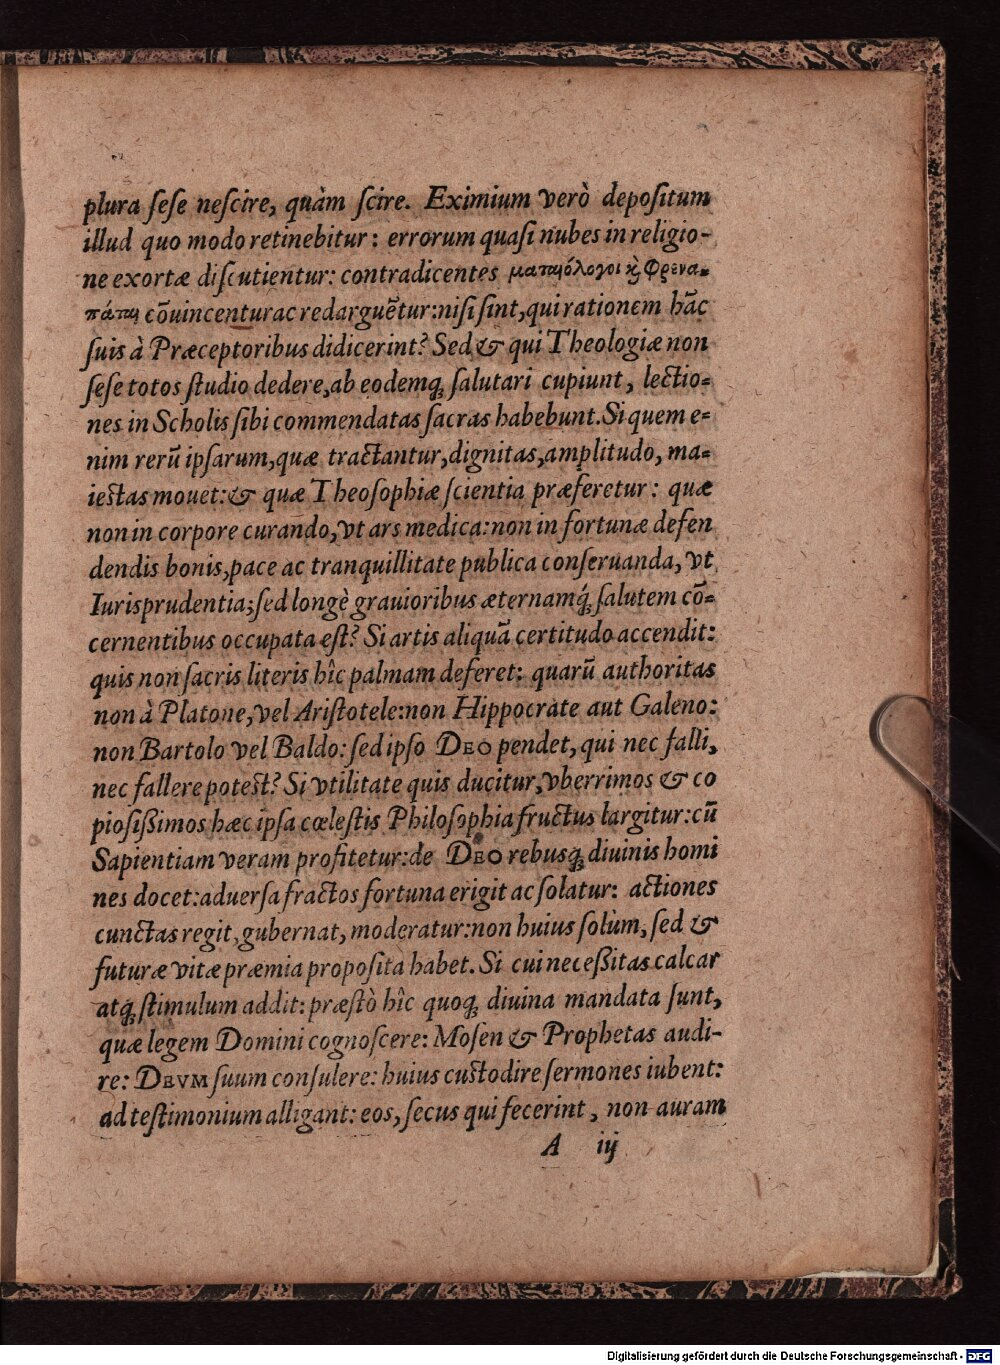 plura ſeſe neſcire, quàm ſcire. Eximium verò depoſitum
illud quo modo retinebitur: errorum quaſi nubes in religio-
ne exortæ diſcutientur: contradicentes ματαιόλογοι κỳ φρενα-
πάται cōuincentur ac redarguētur: niſi ſint, qui rationem hāc
ſuis à Præceptoribus didicerint? Sed & qui Theologiæ non
ſeſe totos ſtudio dedere, ab eodemq; ſalutari cupiunt, lectio-
nes in Scholis ſibi commendatas ſacras habebunt. Si quem e-
nim rerū ipſarum, quæ tractantur, dignitas, amplitudo, ma-
ieſtas mouet: & quæ Theoſophiæ ſcientia præferetur: quæ
non in corpore curando, vt ars medica: non in fortunæ defen
dendis bonis, pace ac tranquillitate publica conſeruanda, vt
Iurisprudentia; ſed longè grauioribus æternamq́; ſalutem cō-
cernentibus occupata eſt? Si artis aliquā certitudo accendit:
quis non ſacris literis hîc palmam deferet: quarū authoritas
non à Platone, vel Ariſtotele: non Hippocrate aut Galeno:
non Bartolo vel Baldo: ſed ipſo DEO pendet, qui nec falli,
nec fallere poteſt? Si vtilitate quis ducitur, vberrimos & co
pioſiſßimos hæc ipſa cœleſtis Philoſophia fructus largitur: cū
Sapientiam veram profitetur: de DEO rebusq; diuinis homi
nes docet: aduerſa fractos fortuna erigit ac ſolatur: actiones
cunctas regit, gubernat, moderatur: non huius ſolùm, ſed &
futuræ vitæ præmia propoſita habet. Si cui neceſßitas calcar
atq; ſtimulum addit: præſtò hîc quoq; diuina mandata ſunt,
quæ legem Domini cognoſcere: Moſen & Prophetas audi-
re: DEVM ſuum conſulere: huius cuſtodire ſermones iubent:
ad teſtimonium alligant: eos, ſecus qui fecerint, non auram
A iij
Digitalisierung gefördert durch die Deutsche Forschungsgemeinschaft - DFG